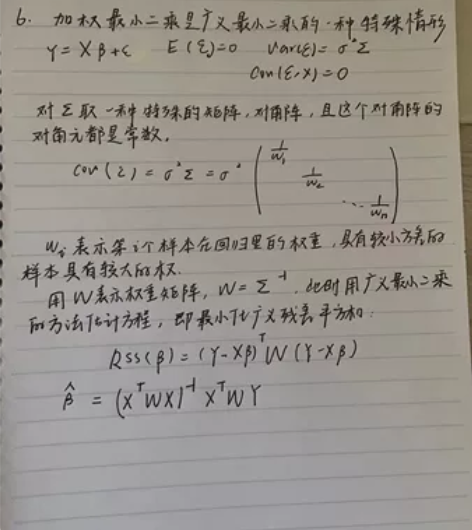 6. 加权最小二乘是广义最小二乘的一种特殊情形
Y = Xβ+ε E(ε)=0 Var(ε) = σ²Σ
Cov(ε,X)=0
对Σ取一种特殊的矩阵,对角阵,且这个对角阵的
对角元都是常数.
Cov(ε) = σ²Σ = σ² ( 1/w₁ 1/w₂ ⋱ 1/wₙ )
wᵢ 表示第i个样本在回归里的权重,具有较小方差的
样本具有较大的权.
用W表示权重矩阵, W = Σ⁻¹. 此时用广义最小二乘
的方法估计方程,即最小化广义残差平方和:
RSS(β) = (Y-Xβ)ᵀW(Y-Xβ)
β̂ = (XᵀWX)⁻¹XᵀWY